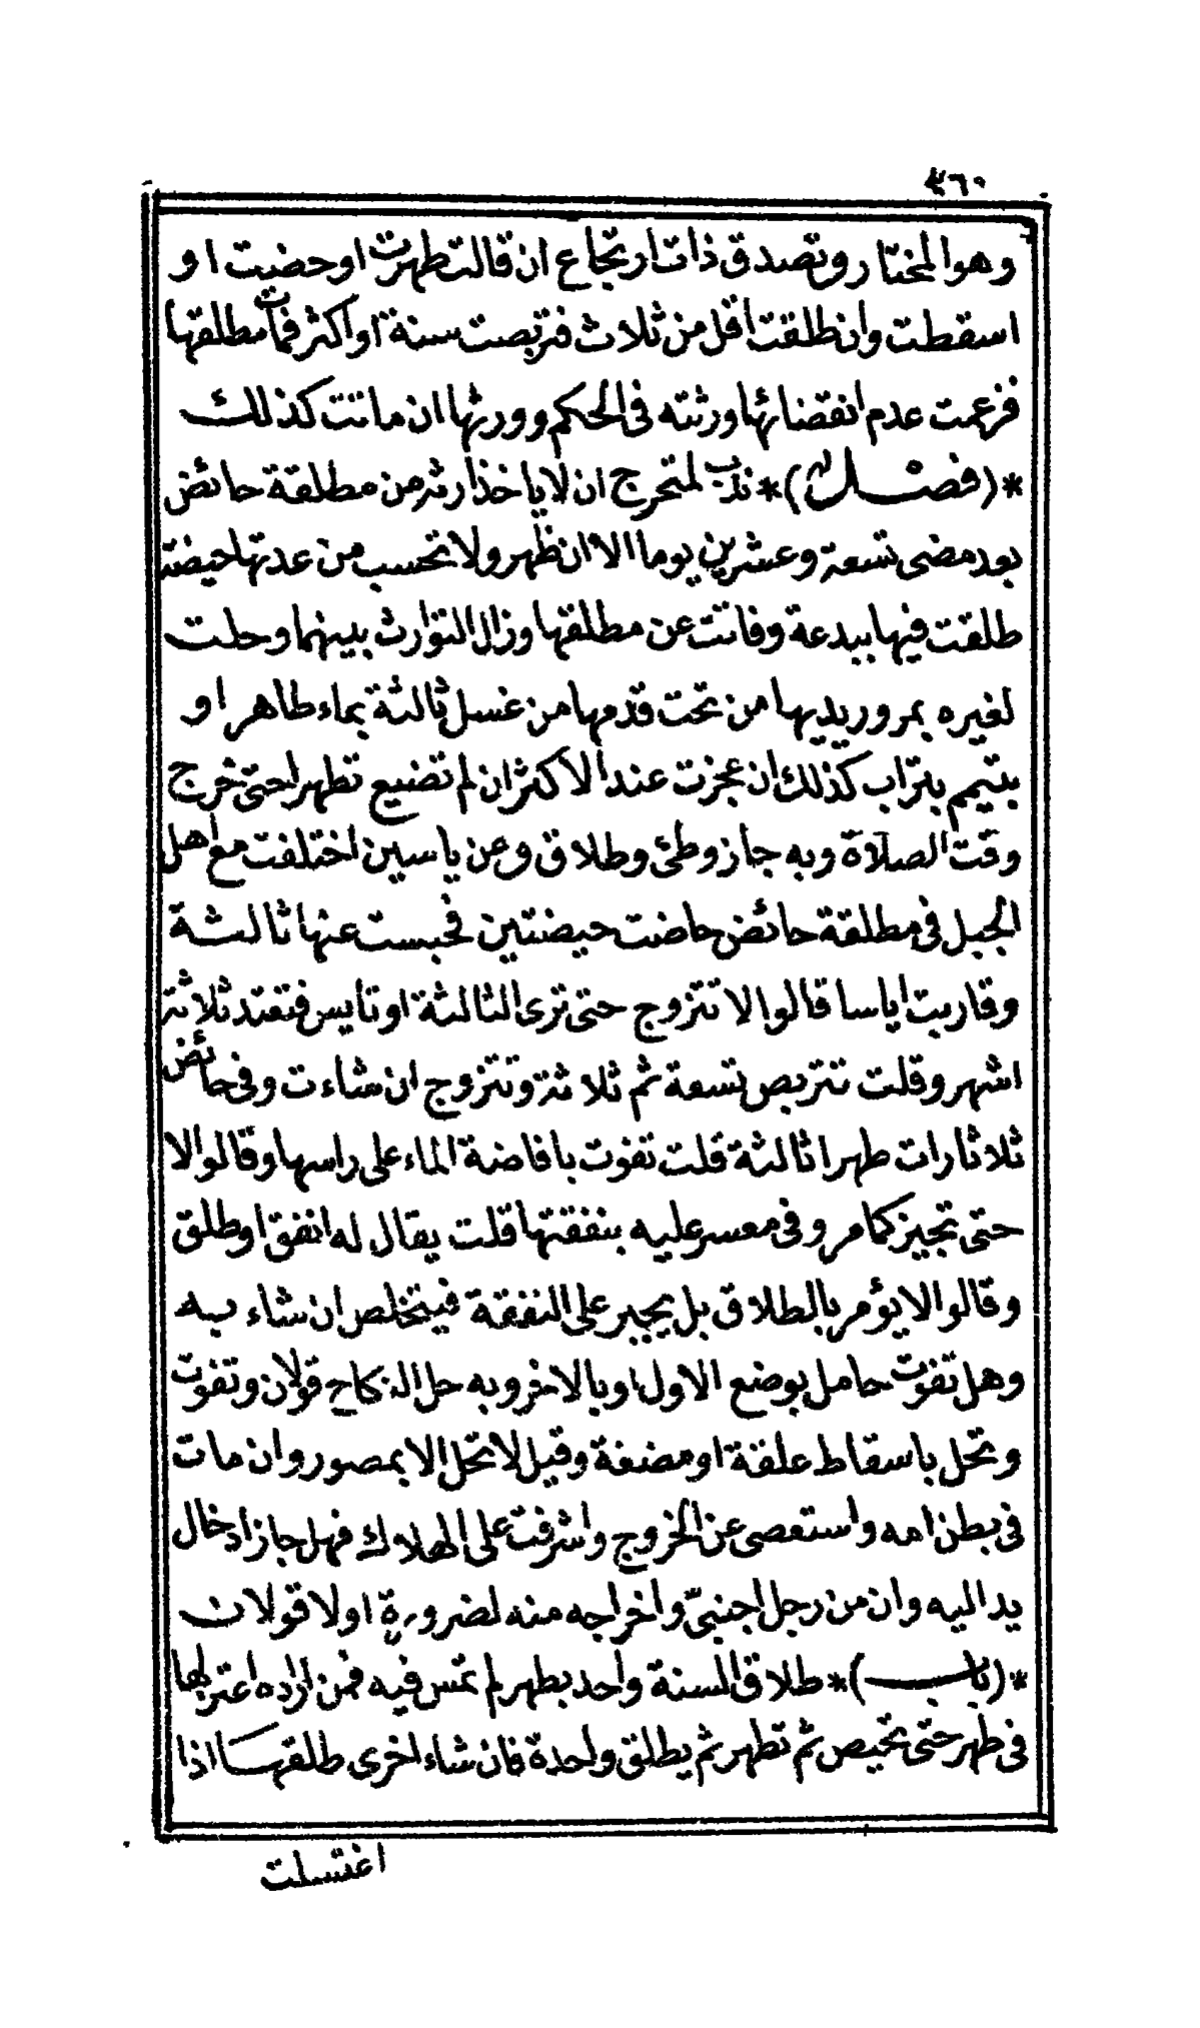 ٤٦٠
وهو المختار وتصدق ذات ارتجاع ان قالت طهرت او حضت او
اسقطت وان طلقت اقل من ثلاث فتربصت سنة او اكثر فمات مطلقها
فزعمت عدم انقضائها ورثته في الحكم وورثها ان ماتت كذلك
*(فصل)* ندب لمتحرج ان لا ياخذ ارثه من مطلقة حائض
بعد مضى تسعة وعشرين يوما الا ان ظهر ولا تحسب من عدتها حيضة
طلقت فيها ببدعة وفاتت عن مطلقها وزال التوارث بينهما وحلت
لغيره بمرور يديها من تحت قدمها من غسل ثالثة بماء طاهر او
بتيمم بتراب كذلك ان عجزت عند الاكثر ان لم تضيع تطهرا حتى خرج
وقت الصلاة وبه جاز وطئ وطلاق وعن ياسين اختلفت مع اهل
الجبل في مطلقة حائض حاضت حيضتين فحبست عنها ثالثة
وقاربت اياسا قالوا لا تتزوج حتى ترى الثالثة او تايس فتعتد ثلاثة
اشهر وقلت تتربص تسعة ثم ثلاثة وتتزوج ان شاءت وفي حائض
ثلاثا رات طهرا ثالثة قلت تفوت بافاضة الماء على راسها وقالوا لا
حتى تجيز كما مر وفي معسر عليه بنفقتها قلت يقال له انفق او طلق
وقالوا لا يؤمر بالطلاق بل يجبر على النفقة فيتخلص ان شاء به
وهل تفوت حامل بوضع الاول او بالاخر وبه حل النكاح قولان وتفوت
وتحل باسقاط علقة او مضغة وقيل لا تحل الا بمصور وان مات
في بطن امه واستعصى عن الخروج واشرفت على الهلاك فهل جاز ادخال
يد اليه وان من رجل اجنبيّ واخراجه منه لضرورة اولا قولان
*(باب)* طلاق السنة واحد بطهر لم تمس فيه فمن اراده اعتزلها
في طهر حتى تحيض ثم تطهر ثم يطلق واحدة فان شاء اخرى طلقها اذا
اغتسلت